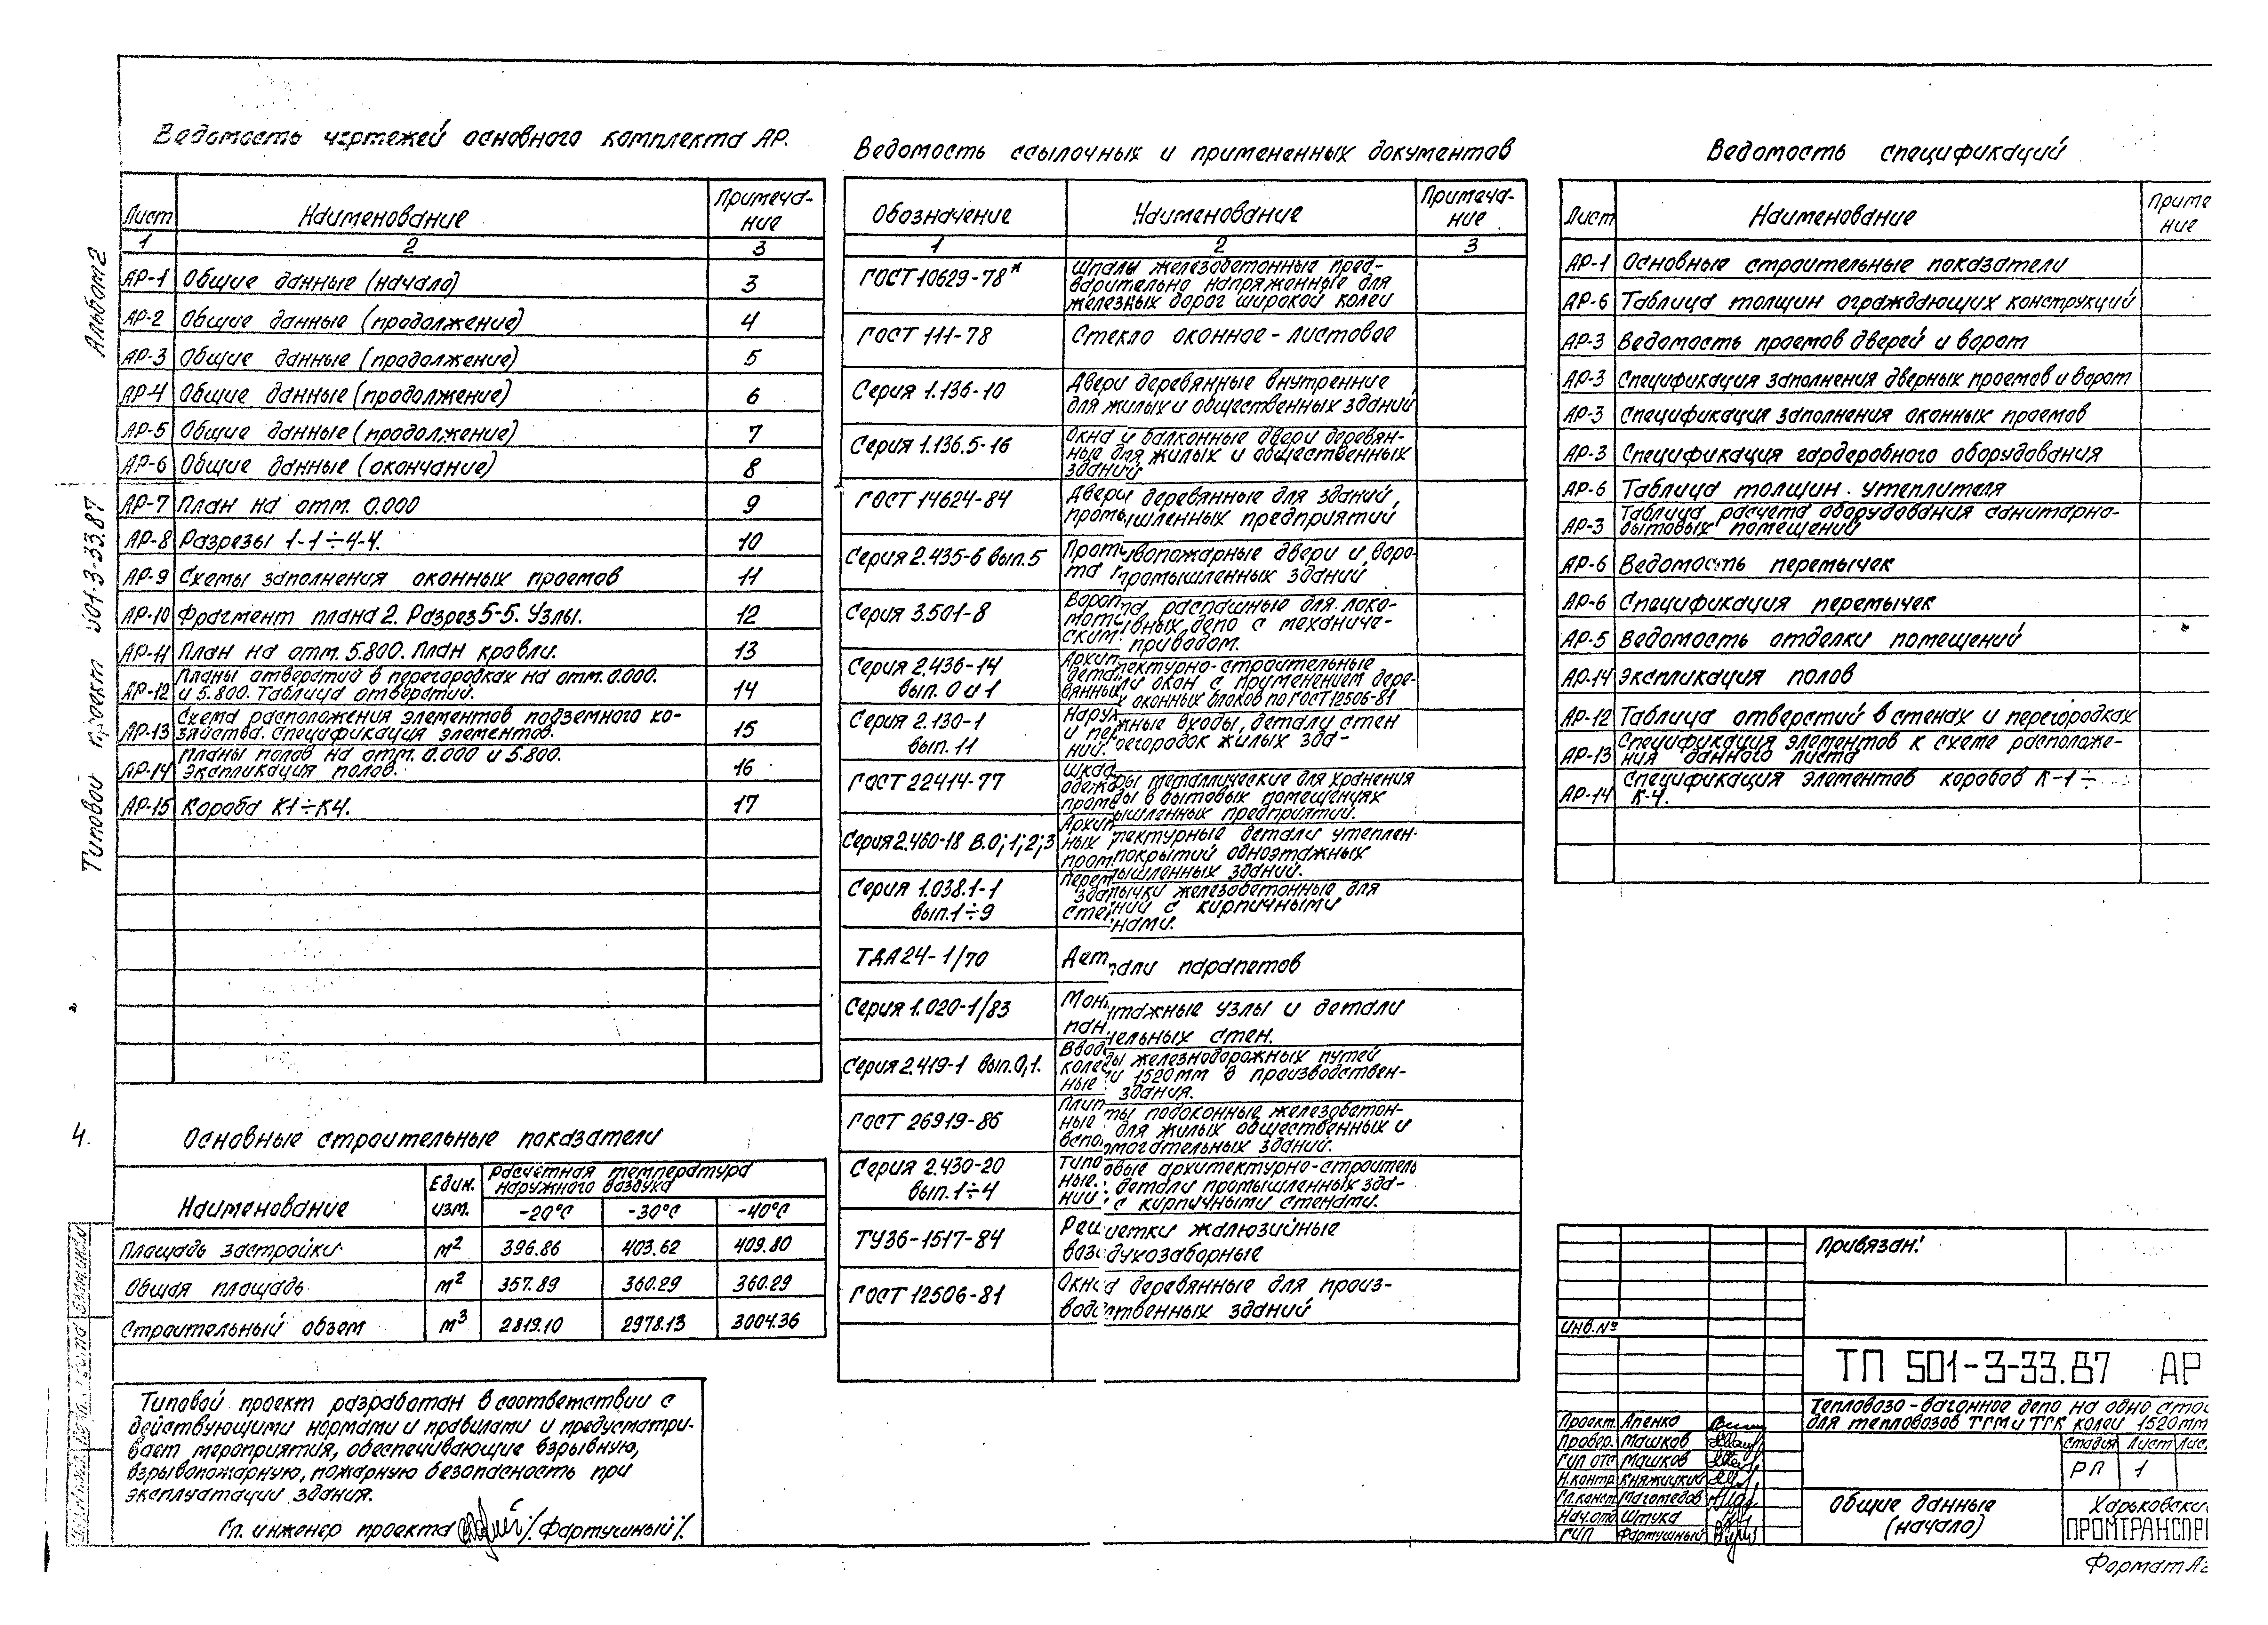 Альбом 2
Типовой проект 501-3-33.87
4.
Ведомость чертежей основного комплекта АР.
Лист Наименование Примеча-
ние
1 2 3
АР-1 Общие данные (начало) 3
АР-2 Общие данные (продолжение) 4
АР-3 Общие данные (продолжение) 5
АР-4 Общие данные (продолжение) 6
АР-5 Общие данные (продолжение) 7
АР-6 Общие данные (окончание) 8
АР-7 План на отм. 0.000 9
АР-8 Разрезы 1-1÷4-4. 10
АР-9 Схемы заполнения оконных проемов 11
АР-10 Фрагмент плана 2. Разрез 5-5. Узлы. 12
АР-11 План на отм. 5.800. План кровли. 13
Планы отверстий в перегородках на отм. 0.000.
АР-12 и 5.800. Таблица отверстий. 14
Схема расположения элементов подземного хо-
АР-13 зяйства. Спецификация элементов. 15
Планы полов на отм. 0.000 и 5.800.
АР-14 Экспликация полов. 16
АР-15 Короба К1÷К4. 17
Основные строительные показатели
Наименование Един. изм. Расчетная температура
наружного воздуха
-20°С -30°С -40°С
Площадь застройки м² 396.86 403.62 409.80
Общая площадь м² 357.89 360.29 360.29
Строительный обзем м³ 2819.10 2978.13 3004.36
Типовой проект разработан в соответствии с
действующими нормами и правилами и предусматри-
вает мероприятия, обеспечивающие взрывную,
взрывопожарную, пожарную безопасность при
эксплуатации здания.
Гл. инженер проекта /Фартушный/.
Ведомость ссылочных и примененных документов
Обозначение Наименование Примеча-
ние
1 2 3
ГОСТ 10629-78* Шпалы железобетонные пред-
варительно напряженные для
железных дорог широкой колеи
ГОСТ 111-78 Стекло оконное - листовое
Серия 1.136-10 Двери деревянные внутренние
для жилых и общественных зданий
Серия 1.136.5-16 Окна и балконные двери деревян-
ные для жилых и общественных
зданий
ГОСТ 14624-84 Двери деревянные для зданий
промышленных предприятий
Серия 2.435-6 вып.5 Противопожарные двери и воро-
та промышленных зданий
Серия 3.501-8 Ворота распашные для локо-
мотивных депо с механиче-
ским приводом.
Серия 2.436-14 Архитектурно-строительные
вып. 0 и 1 детали окон с применением дере-
вянных оконных блоков по ГОСТ 12506-81
Серия 2.130-1 Наружные входы, детали стен
вып. 11 и перегородок жилых зда-
ний.
ГОСТ 22414-77 Шкафы металлические для хранения
одежды в бытовых помещениях
промышленных предприятий.
Серия 2.460-18 В.0;1;2;3 Архитектурные детали утеплен-
ных покрытий одноэтажных
промышленных зданий.
Серия 1.038.1-1 Перемычки железобетонные для
вып.1÷9 зданий с кирпичными
стенами.
ТДА24-1/70 Детали парапетов
Серия 1.020-1/83 Монтажные узлы и детали
панельных стен.
Серия 2.419-1 вып.0,1. Вводы железнодорожных путей
колеи 1520мм в производствен-
ные здания.
ГОСТ 26919-86 Плиты подоконные железобетон-
ные для жилых общественных и
вспомогательных зданий.
Серия 2.430-20 Типовые архитектурно-строитель
вып.1÷4 ные детали промышленных зда-
ний с кирпичными стенами.
ТУ36-1517-84 Решетки жалюзийные
воздухозаборные
ГОСТ 12506-81 Окна деревянные для произ-
водственных зданий
Ведомость спецификаций
Лист Наименование Приме
ние
АР-1 Основные строительные показатели
АР-6 Таблица толщин ограждающих конструкций
АР-3 Ведомость проемов дверей и ворот
АР-3 Спецификация заполнения дверных проемов и ворот
АР-3 Спецификация заполнения оконных проемов
АР-3 Спецификация гардеробного оборудования
АР-6 Таблица толщин утеплителя
Таблица расчета оборудования санитарно-
АР-3 бытовых помещений
АР-6 Ведомость перемычек
АР-6 Спецификация перемычек
АР-5 Ведомость отделки помещений
АР-14 Экспликация полов
АР-12 Таблица отверстий в стенах и перегородках
Спецификация элементов к схеме расположе-
АР-13 ния данного листа
Спецификация элементов коробов К-1÷
АР-14 К-4.
Привязан:
Инв.№
ТП 501-3-33.87 АР
Тепловозо-вагонное депо на одно стой
для тепловозов ТГМ и ТГК колеи 1520мм
Проект. Апенко
Провер. Машков
ГИП ОТС Машков
Н.контр. Княжицкий
Гл.конст. Магомедов
Нач.отд. Штука
ГИП Фартушный
Стадия Лист Лис
РП 1
Общие данные
(начало)
Харьковски
ПРОМТРАНСПР
Формат А2